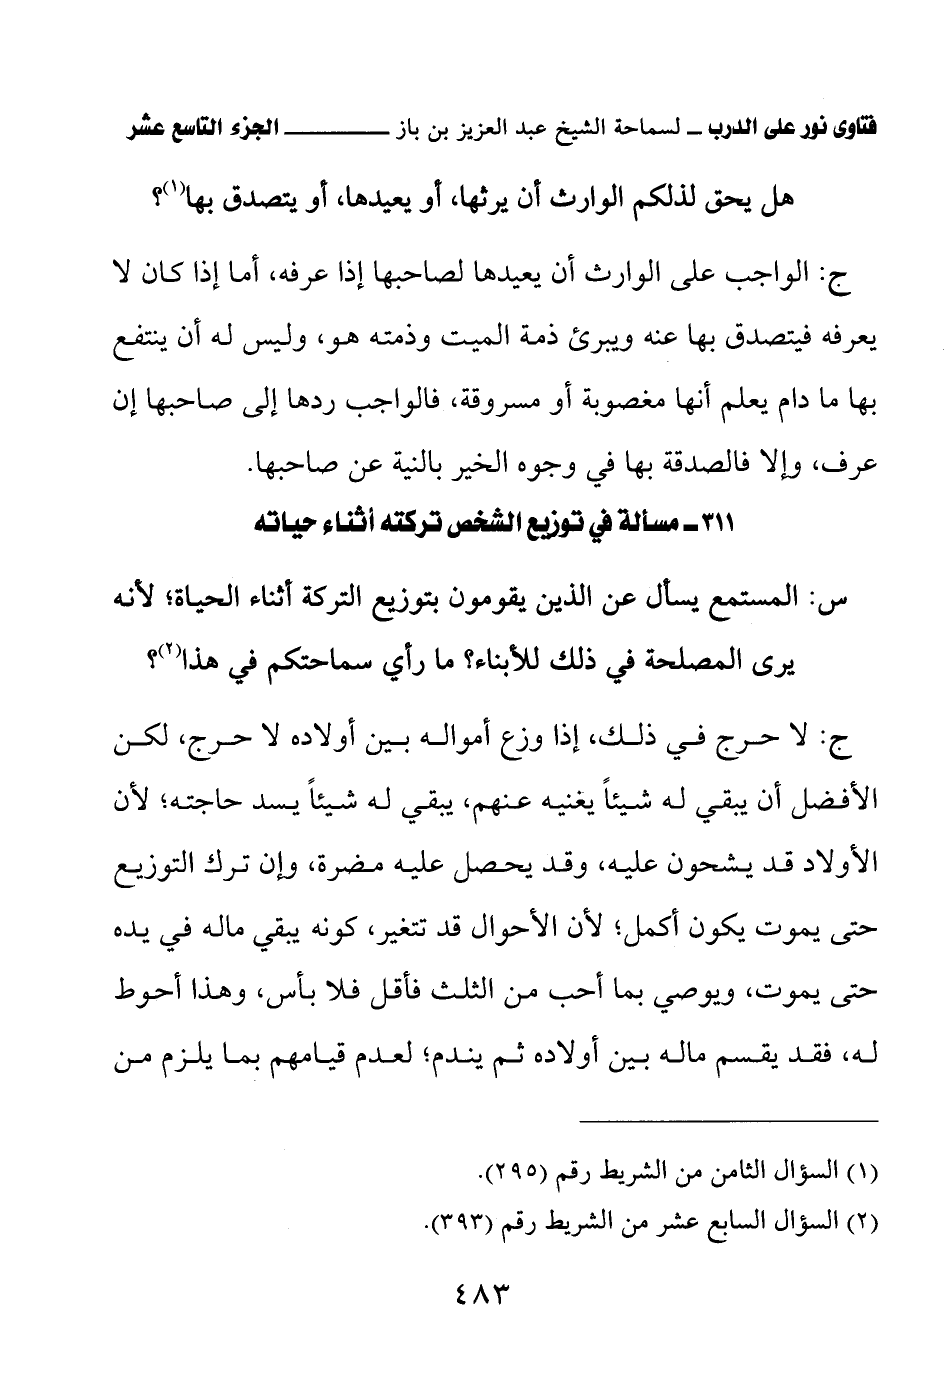 فتاوى نور على الدرب ـ لسماحة الشيخ عبد العزيز بن باز ــــــــــــ الجزء التاسع عشر
هل يحق لذلكم الوارث أن يرثها، أو يعيدها، أو يتصدق بها(١)؟
ج: الواجب على الوارث أن يعيدها لصاحبها إذا عرفه، أما إذا كان لا
يعرفه فيتصدق بها عنه ويبرئ ذمة الميت وذمته هو، وليس له أن ينتفع
بها ما دام يعلم أنها مغصوبة أو مسروقة، فالواجب ردها إلى صاحبها إن
عرف، وإلا فالصدقة بها في وجوه الخير بالنية عن صاحبها.
٣١١ ـ مسألة في توزيع الشخص تركته أثناء حياته
س: المستمع يسأل عن الذين يقومون بتوزيع التركة أثناء الحياة؛ لأنه
يرى المصلحة في ذلك للأبناء؟ ما رأي سماحتكم في هذا(٢)؟
ج: لا حرج في ذلك، إذا وزع أمواله بين أولاده لا حرج، لكن
الأفضل أن يبقي له شيئاً يغنيه عنهم، يبقي له شيئاً يسد حاجته؛ لأن
الأولاد قد يشحون عليه، وقد يحصل عليه مضرة، وإن ترك التوزيع
حتى يموت يكون أكمل؛ لأن الأحوال قد تتغير، كونه يبقي ماله في يده
حتى يموت، ويوصي بما أحب من الثلث فأقل فلا بأس، وهذا أحوط
له، فقد يقسم ماله بين أولاده ثم يندم؛ لعدم قيامهم بما يلزم من
(١) السؤال الثامن من الشريط رقم (٢٩٥).
(٢) السؤال السابع عشر من الشريط رقم (٣٩٣).
٤٨٣